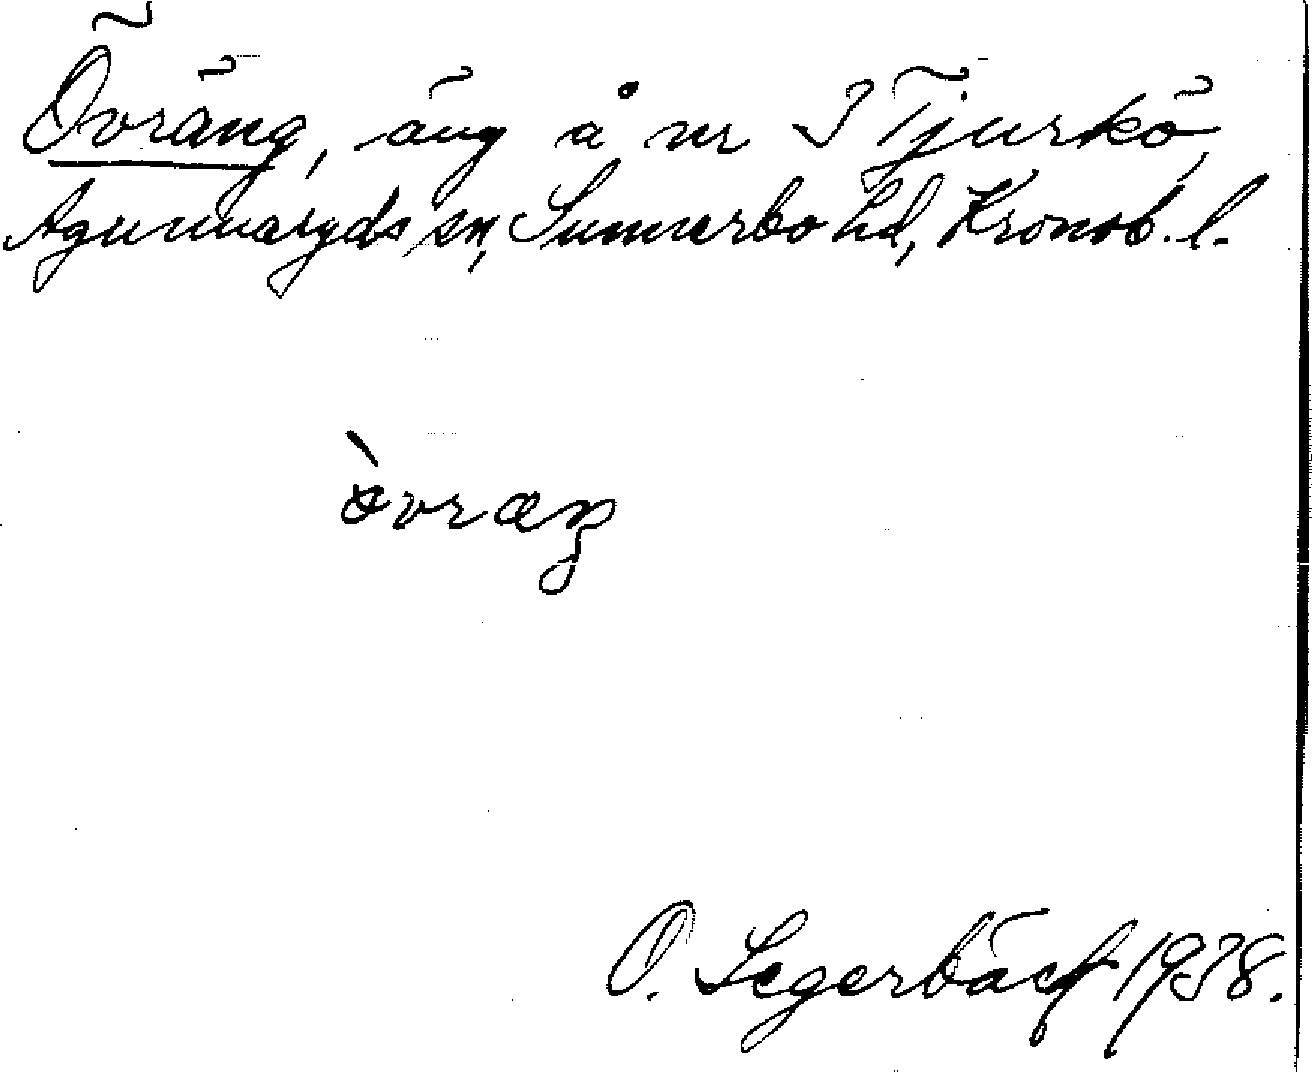 Övräng, äng å nr 3 Tjurkö,
Agunnaryds sn, Sunnerbo hd, Kronob. l.
òvræŋ
O. Segerbäck 1938.